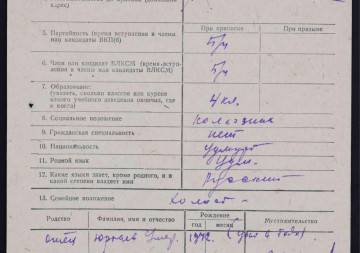 адрес)
При приписке
При призыве
5. Партийность (время вступления в члены
или кандидаты ВКП(б)
б/п
6. Член или кандидат ВЛКСМ (время вступ-
ления в члены или кандидаты ВЛКСМ)
б/п
7. Образование:
(указать, сколько классов или курсов
какого учебного заведения окончил, где
и когда)
4 кл.
8. Социальное положение
колхозник
9. Гражданская специальность
нет
10. Национальность
удмурт
11. Родной язык
Удм.
12. Какие языки знает, кроме родного, и в
какой степени владеет ими
Русский
13. Семейное положение
Холост
Родство
Фамилия, имя и отчество
Рождение
год
месяц
Местожительство
отец